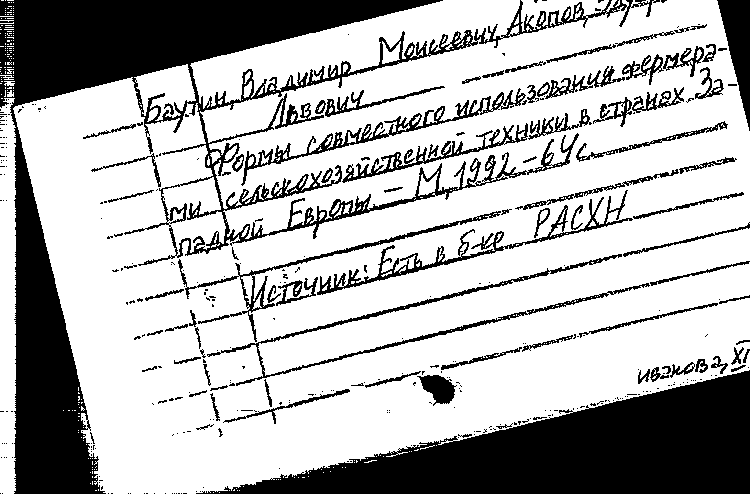 Баутин, Владимир Моисеевич, Акопов,
Львович
Формы совместного использования фермера-
ми сельскохозяйственной техники в странах За-
падной Европы. – М, 1992. – 64 с.
Источник: Есть в б-ке РАСХН
Иванова, XI